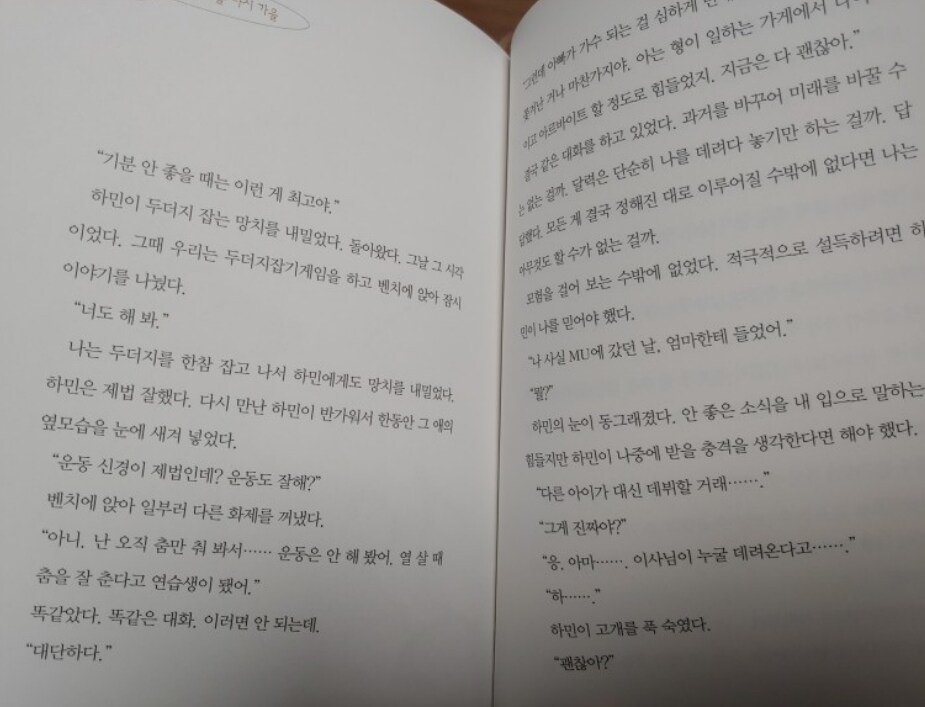 다시 가을
“기분 안 좋을 때는 이런 게 최고야.”
하민이 두더지 잡는 망치를 내밀었다. 돌아왔다. 그날 그 시각
이었다. 그때 우리는 두더지잡기게임을 하고 벤치에 앉아 잠시
이야기를 나눴다.
“너도 해 봐.”
나는 두더지를 한참 잡고 나서 하민에게도 망치를 내밀었다.
하민은 제법 잘했다. 다시 만난 하민이 반가워서 한동안 그 애의
옆모습을 눈에 새겨 넣었다.
“운동 신경이 제법인데? 운동도 잘해?”
벤치에 앉아 일부러 다른 화제를 꺼냈다.
“아니. 난 오직 춤만 춰 봐서…… 운동은 안 해 봤어. 열 살 때
춤을 잘 춘다고 연습생이 됐어.”
똑같았다. 똑같은 대화. 이러면 안 되는데.
“대단하다.”
그런데 아빠가 가수 되는 걸 심하게
쫓겨난 거나 마찬가지야. 아는 형이 일하는 가게에서
이고 아르바이트 할 정도로 힘들었지. 지금은 다 괜찮아.”
결국 같은 대화를 하고 있었다. 과거를 바꾸어 미래를 바꿀 수
는 없는 걸까. 달력은 단순히 나를 데려다 놓기만 하는 걸까. 답
답했다. 모든 게 결국 정해진 대로 이루어질 수밖에 없다면 나는
아무것도 할 수가 없는 걸까.
모험을 걸어 보는 수밖에 없었다. 적극적으로 설득하려면 하
민이 나를 믿어야 했다.
“나 사실 MU에 갔던 날, 엄마한테 들었어.”
“뭘?”
하민의 눈이 동그래졌다. 안 좋은 소식을 내 입으로 말하는
힘들지만 하민이 나중에 받을 충격을 생각한다면 해야 했다.
“다른 아이가 대신 데뷔할 거래…….”
“그게 진짜야?”
“응. 아마……. 이사님이 누굴 데려온다고…….”
“하…….”
하민이 고개를 푹 숙였다.
“괜찮아?”